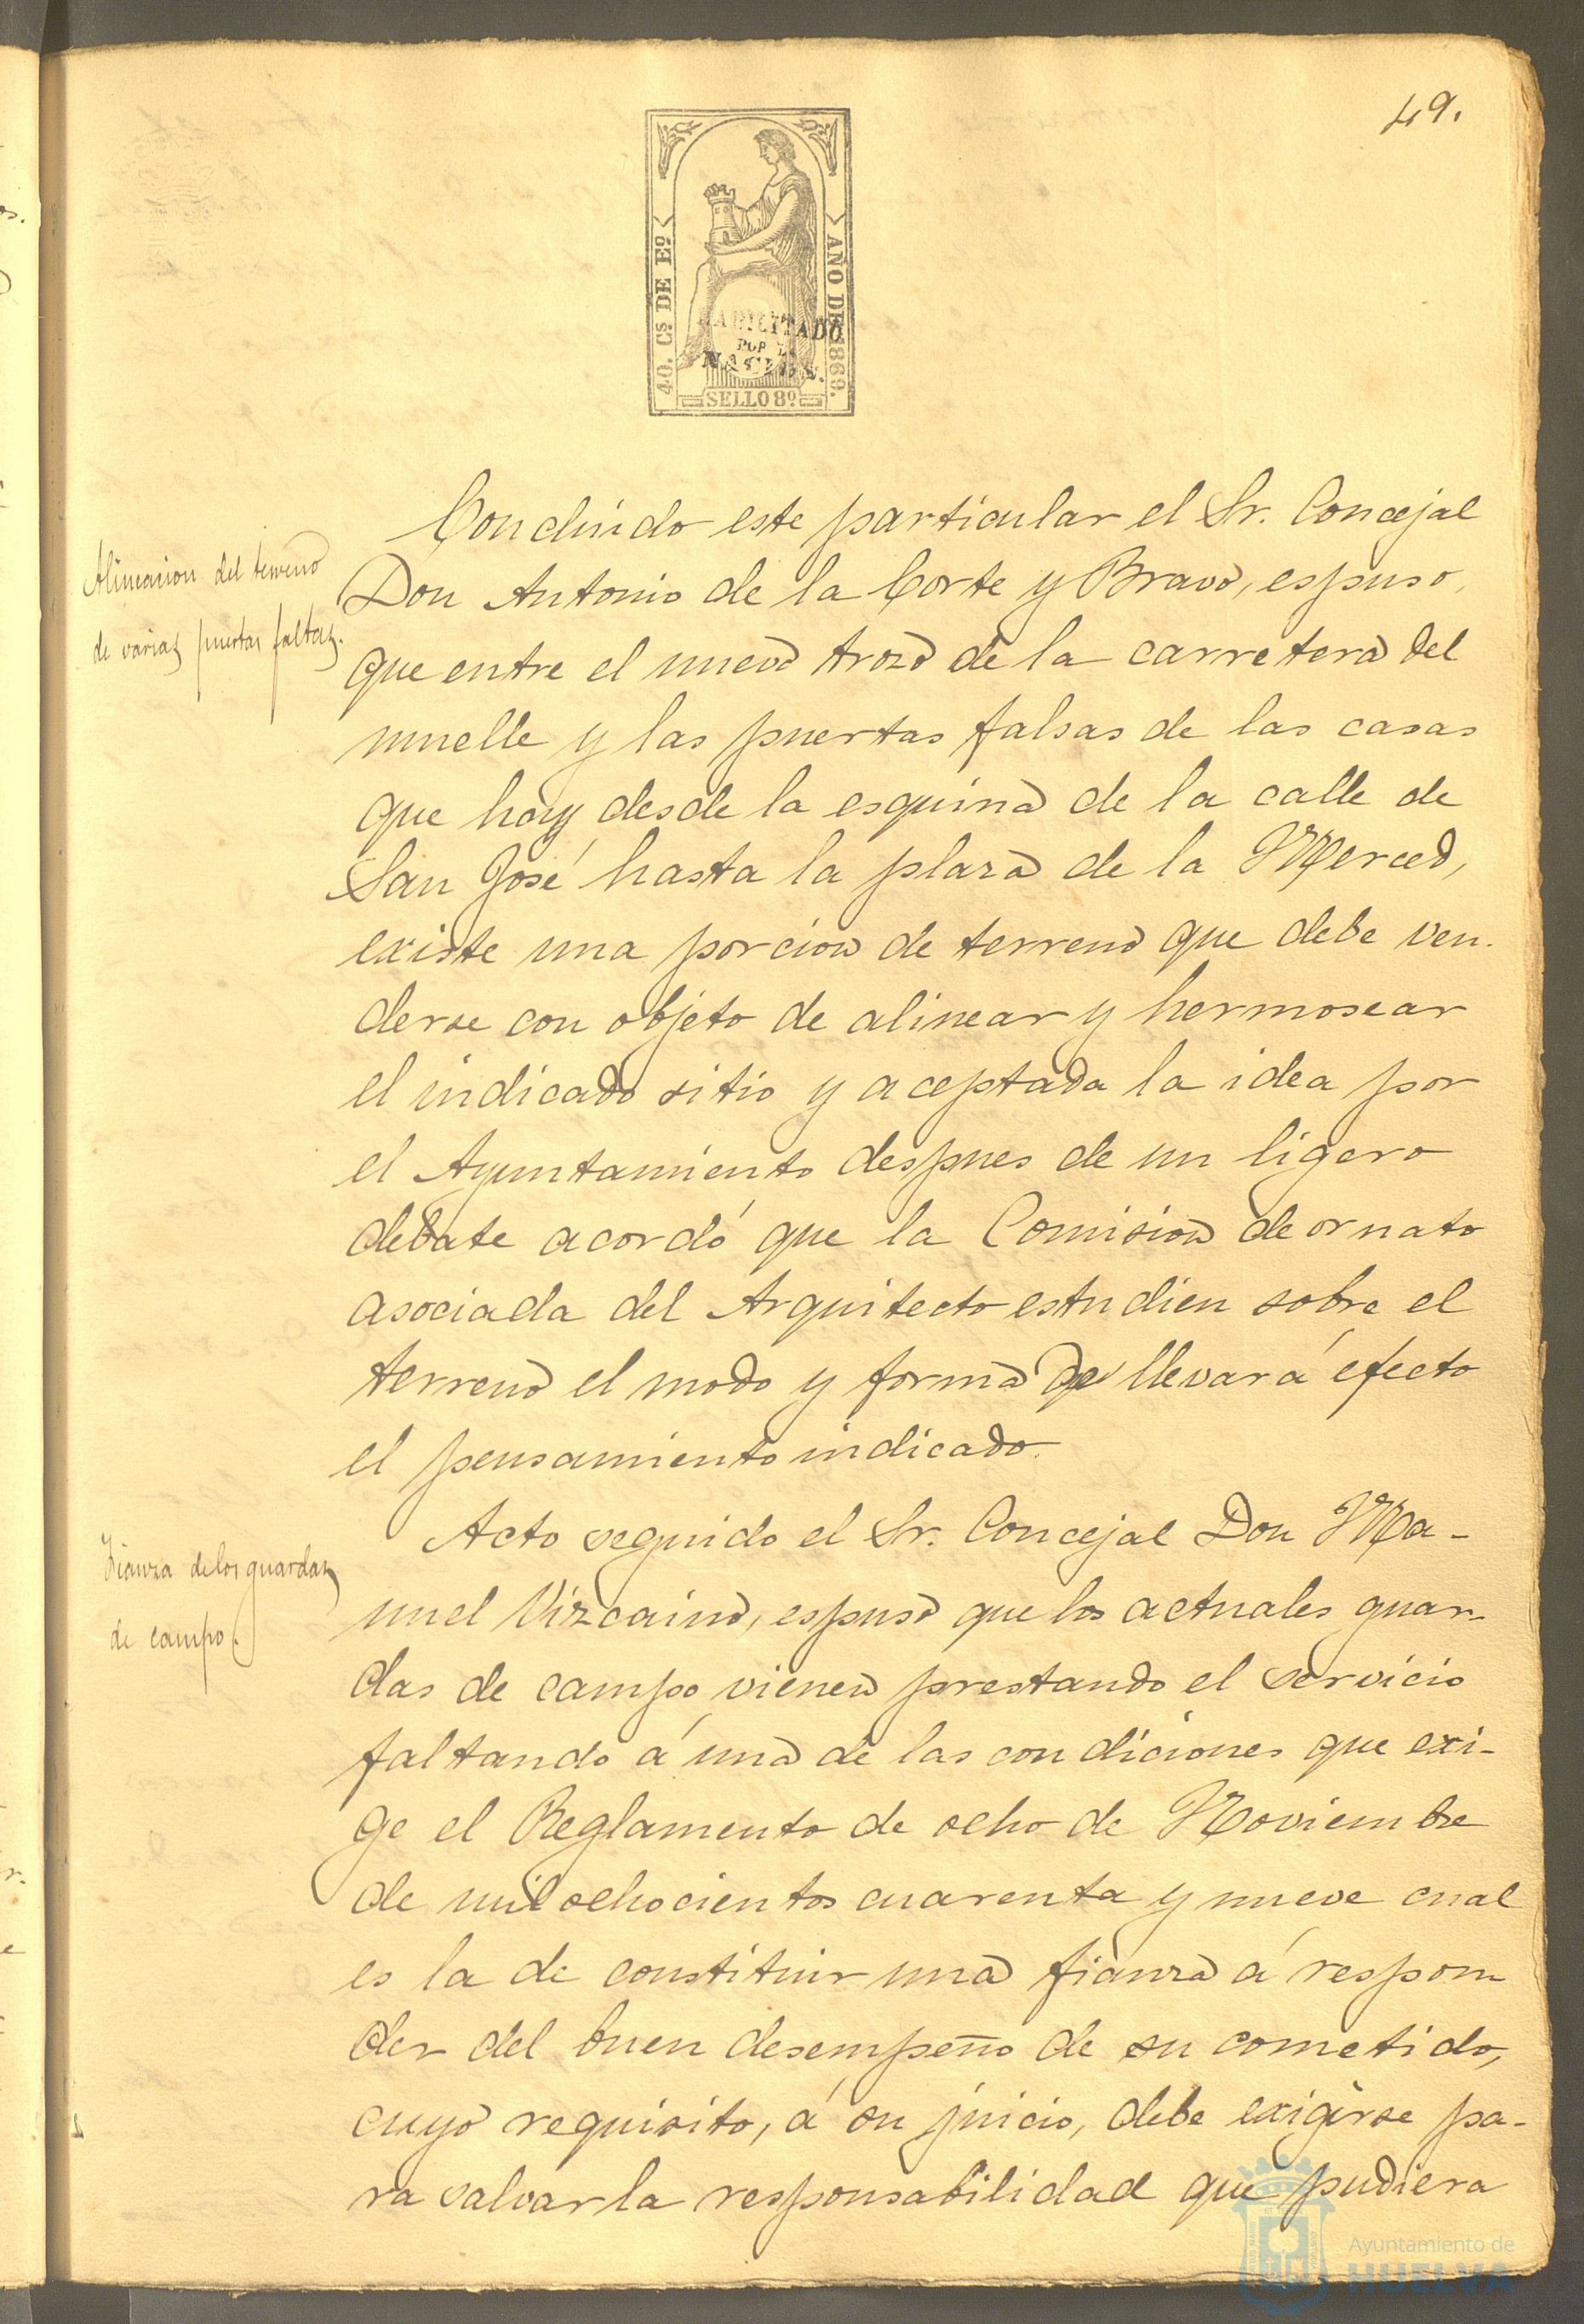 49.
40. Cs. DE Eo.
AÑO DE 1869.
HABILITADO
POR LA
NACION.
SELLO 8º
Alineacion del terreno
de varias puertas falsas.
Concluido este particular el Sr. Concejal
Don Antonio de la Corte y Bravo, espuso,
que entre el nuevo trozo de la carretera del
muelle y las puertas falsas de las casas
que hay desde la esquina de la calle de
San José hasta la plaza de la Merced,
existe una porcion de terreno que debe ven-
derse con objeto de alinear y hermosear
el indicado sitio y aceptada la idea por
el Ayuntamiento despues de un ligero
debate acordó que la Comision de ornato
asociada del Arquitecto estudien sobre el
terreno el modo y forma de llevar á efecto
el pensamiento indicado.
Fianza de los guardas
de campo.
Acto seguido el Sr. Concejal Don Ma-
nuel Vizcaino, espuso que los actuales guar-
das de campo, vienen prestando el servicio
faltando á una de las condiciones que exi-
ge el Reglamento de ocho de Noviembre
de mil ochocientos cuarenta y nueve cual
es la de constituir una fianza á respon-
der del buen desempeño de su cometido,
cuyo requisito, á su juicio, debe exigirse pa-
ra salvar la responsabilidad que pudiera
Ayuntamiento de
HUELVA